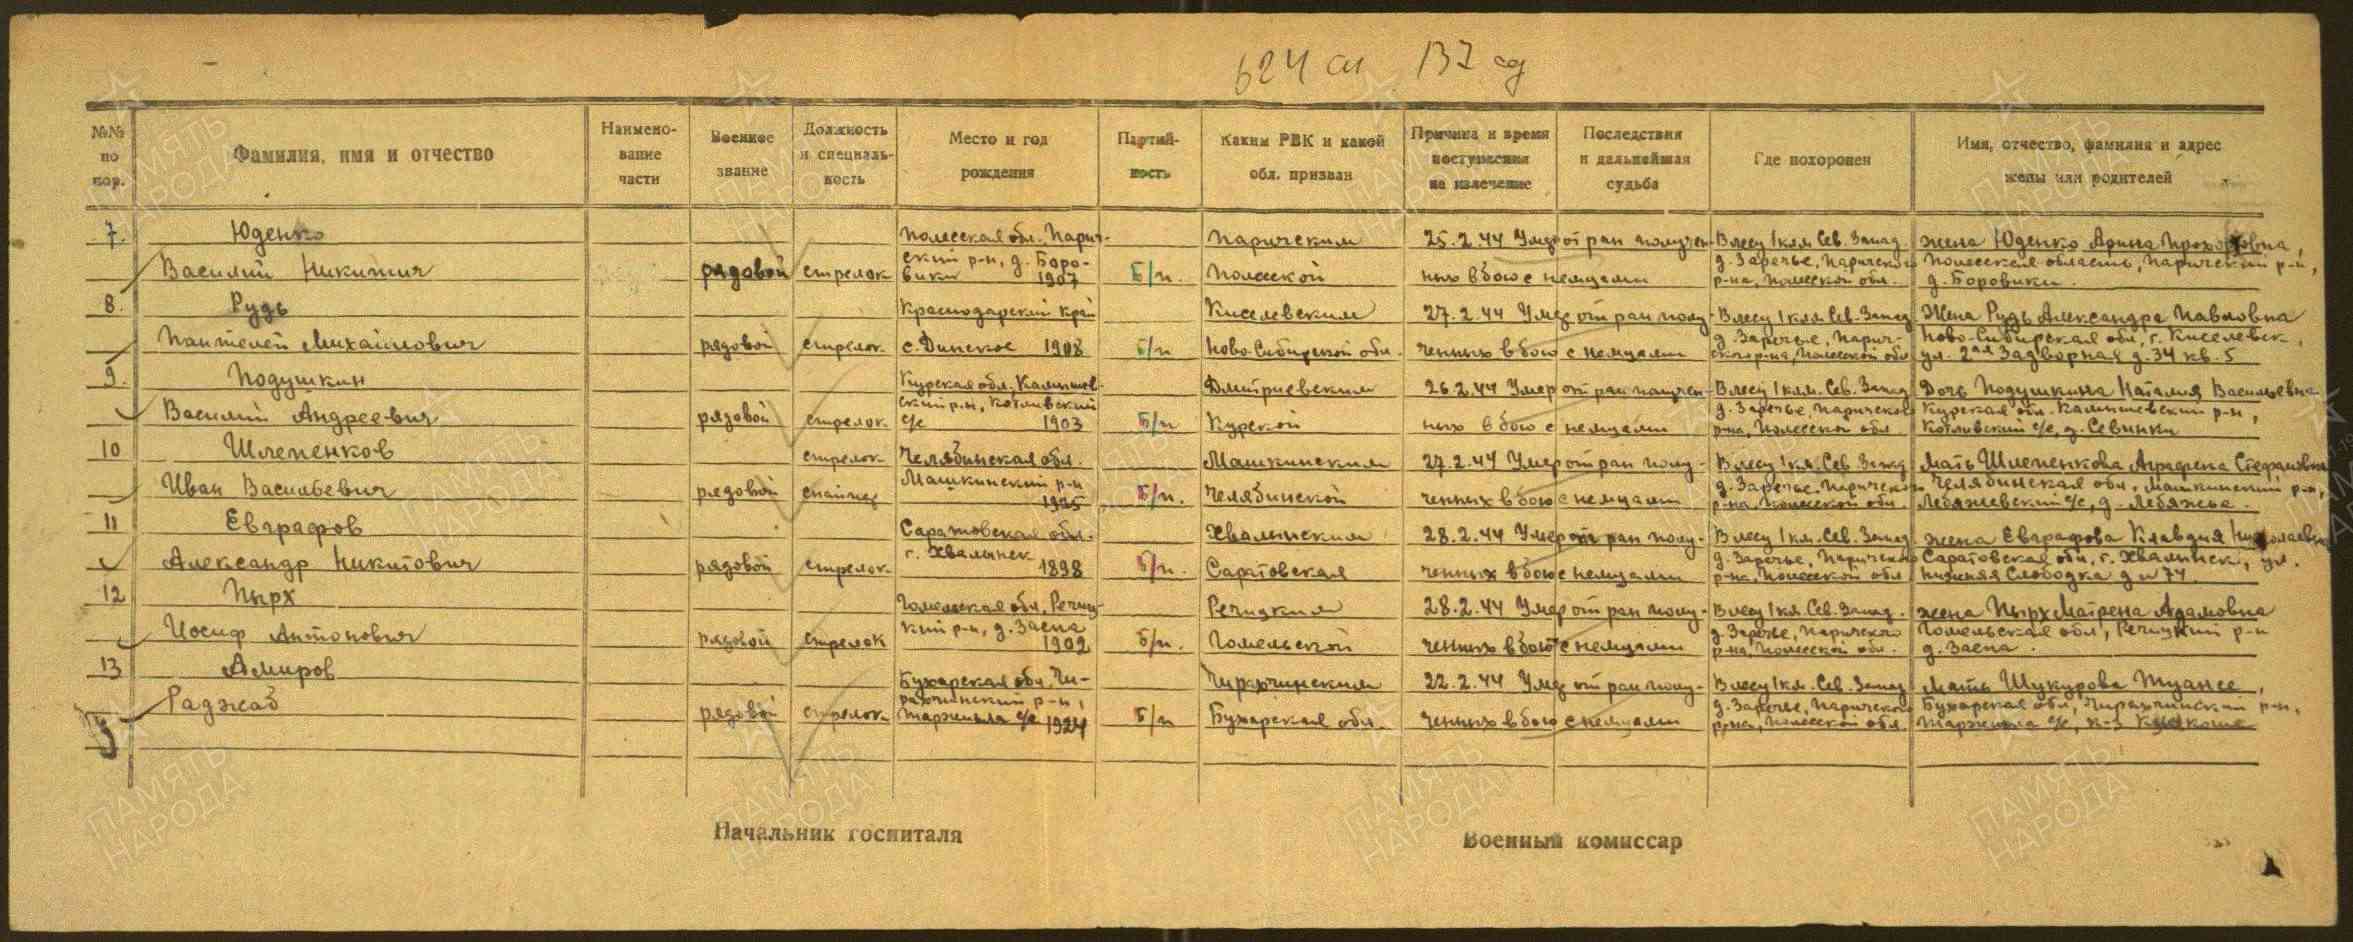 624 сп 137 сд
№№ по пор.
Фамилия, имя и отчество
Наимено-
вание
части
Военное
звание
Должность
и специаль-
ность
Место и год
рождения
Партий-
ность
Каким РВК и какой
обл. призван
Причина и время
поступления
на излечение
Последствия
и дальнейшая
судьба
Где похоронен
Имя, отчество, фамилия и адрес
жены или родителей
7. Юденко
Василий Никитич
рядовой
стрелок
Полесская обл. Парич-
ский р-н, д. Боро-
вики 1907
Б/п.
Паричским
Полесской
25.2.44 Умер от ран получен-
ных в бою с немцами
В лесу 1 клм. Сев. Запад.
д. Заречье, Паричского
р-на, Полесской обл.
жена Юденко Арина Прохоровна,
Полесская область, Паричский р-н,
д. Боровики.
8. Рудь
Пантелей Михайлович
рядовой
стрелок
Краснодарский край
с. Динское 1908
Б/п
Киселевским
Ново-Сибирской обл.
27.2.44 Умер от ран полу-
ченных в бою с немцами
В лесу 1 клм. Сев. Запад
д. Заречье, Парич-
ского р-на, Полесской обл
Жена Рудь Александра Павловна
Ново-Сибирская обл, г. Киселевск,
ул. 2ая Задворная д. 34 кв. 5
9. Подушкин
Василий Андреевич
рядовой
стрелок
Курская обл.
ский р-н, Котлевский
с/с 1903
Б/п
Дмитриевским
Курской
26.2.44 Умер от ран получен-
ных в бою с немцами
В лесу 1 клм. Сев. Запад
д. Заречье, Паричского
р-на, Полесской обл
Дочь Подушкина Наталия Васильевна
Курская обл. р-н,
Котлевский с/с, д. Севинки
10 Шлепенков
Иван Васильевич
рядовой
стрелок
снайпер
Челябинская обл.
Машкинский р-н
1925
Б/п.
Машкинским
Челябинской
27.2.44 Умер от ран полу-
ченных в бою с немцами
В лесу 1 км. Сев. Запад
д. Заречье, Паричского
р-на, Полесской обл.
Мать Шлепенкова Аграфена Стефановна
Челябинская обл, Машкинский р-н,
Лебяжевский с/с, д. Лебяжье.
11 Евграфов
Александр Никитович
рядовой
стрелок
Саратовская обл.
г. Хвалынск
1898
Б/п.
Хвалынским
Саратовская
28.2.44 Умер от ран полу-
ченных в бою с немцами
В лесу 1 км. Сев. Запад
д. Заречье, Паричского
р-на, Полесской обл
жена Евграфова Клавдия Николаевна
Саратовская обл, г. Хвалынск, ул.
нижняя Слободка д № 74
12 Пырх
Иосиф Антонович
рядовой
стрелок
Гомельская обл, Речиц-
кий р-н, д. Заспа
1902
Б/п.
Речицким
Гомельской
28.2.44 Умер от ран полу-
ченных в бою с немцами
В лесу 1 км. Сев. Запад.
д. Заречье, Паричского
р-на, Полесской обл.
жена Пырх Матрена Адамовна
Гомельская обл, Речицкий р-н
д. Заспа.
13 Амиров
Раджаб
рядовой
стрелок
Бухарская обл, Чи-
ракчинский р-н,
с/с 1924
Б/п
Чиракчинским
Бухарская обл.
22.2.44 Умер от ран полу-
ченных в бою с немцами
В лесу 1 км. Сев. Запад
д. Заречье, Паричского
р-на, Полесской обл
мать Шукурова,
Бухарская обл, Чиракчинский р-н,
с/с, к-з
Начальник госпиталя
Военный комиссар
ПАМЯТЬ НАРОДА